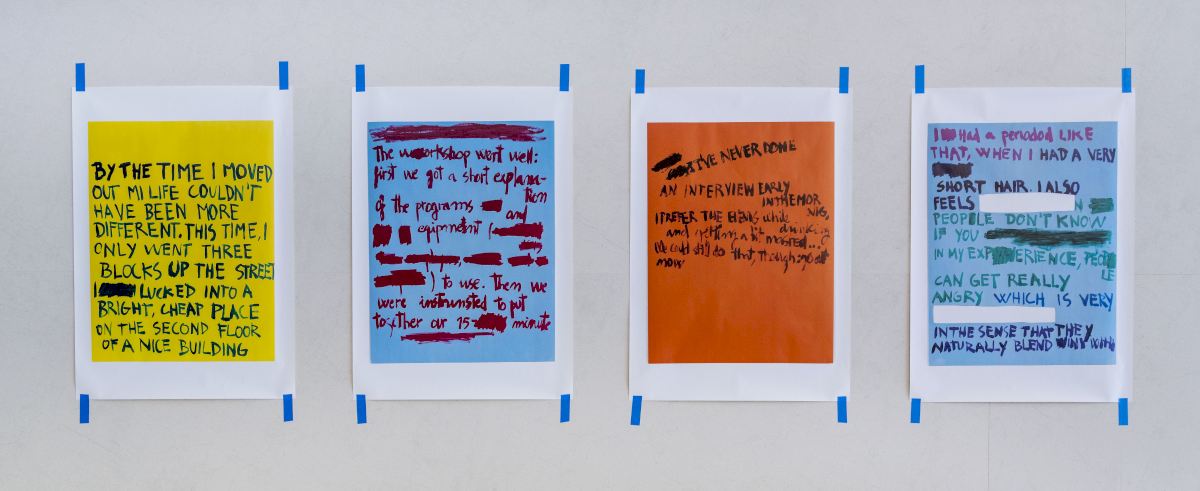 BY THE TIME I MOVED
OUT MI LIFE COULDN'T
HAVE BEEN MORE
DIFFERENT. THIS TIME, I
ONLY WENT THREE
BLOCKS UP THE STREET
I LUCKED INTO A
BRIGHT, CHEAP PLACE
ON THE SECOND FLOOR
OF A NICE BUILDING
The workshop went well:
first we got a short explana-
tion
of the programs
and
eqipment (
) to use. Then we
were instrunsted to put
together our 15- minute
I'VE NEVER DONE
AN INTERVIEW EARLY
IN THE MOR
NIG,
I PREFER THE while drinking
and getting a bit
We could still do that, though
now
I Had a periodod LIKE
THAT, WHEN I HAD A VERY
SHORT HAIR. I ALSO
FEELS
PEOPLE DON'T KNOW
IF YOU
IN MY EXPERIENCE, PEOP
LE
CAN GET REALLY
ANGRY WHICH IS VERY
IN THE SENSE THAT THEY
NATURALLY BLEND